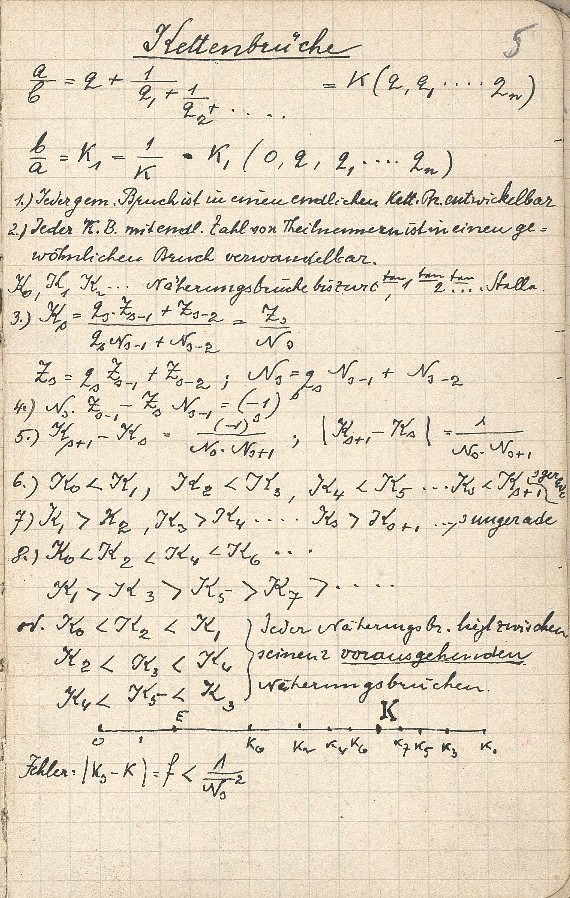 Kettenbrüche 5
a/b = q + 1/(q₁ + 1/(q₂ + ..... = K (q, q₁ .... qₙ)
b/a = K₁ = 1/K = K₁ (0, q, q₁ .... qₙ)
1.) Jeder gem. Bruch ist in einen endlichen Kett. Br. entwickelbar
2.) Jeder K. B. mit endl. Zahl von Theilnennern ist in einen ge=
wöhnlichen Bruch verwandelbar.
K₀, K₁ K₂ ... Näherungsbrüche bis zur 0ᵗᵉⁿ, 1ᵗᵉⁿ 2ᵗᵉⁿ .... Stelle
3.) Kₛ = (qₛ Zₛ₋₁ + Zₛ₋₂)/(qₛ Nₛ₋₁ + Nₛ₋₂) = Zₛ/Nₛ
Zₛ = qₛ Zₛ₋₁ + Zₛ₋₂ ; Nₛ = qₛ Nₛ₋₁ + Nₛ₋₂
4.) Nₛ. Zₛ₋₁ - Zₛ Nₛ₋₁ = (-1)ˢ
5.) Kₛ₊₁ - Kₛ = (-1)ˢ/(Nₛ. Nₛ₊₁) ; |Kₛ₊₁ - Kₛ| = 1/(Nₛ. Nₛ₊₁)
6.) K₀ < K₁, K₂ < K₃, K₄ < K₅ ... Kₛ < Kₛ₊₁ s gerade
7) K₁ > K₂, K₃ > K₄ .... Kₛ > Kₛ₊₁ ..., s ungerade
8.) K₀ < K₂ < K₄ < K₆ ...
K₁ > K₃ > K₅ > K₇ > ....
od. K₀ < K₂ < K₁ } Jeder Näherungsbr. liegt zwischen
K₂ < K₃ < K₄ seinen 2 vorausgehenden
K₄ < K₅ < K₃ Näherungsbrüchen.
E K
0 1 K₀ K₂ K₄ K₆ K₇ K₅ K₃ K₁
Fehler: |Kₛ - K| = f < 1/Nₛ²